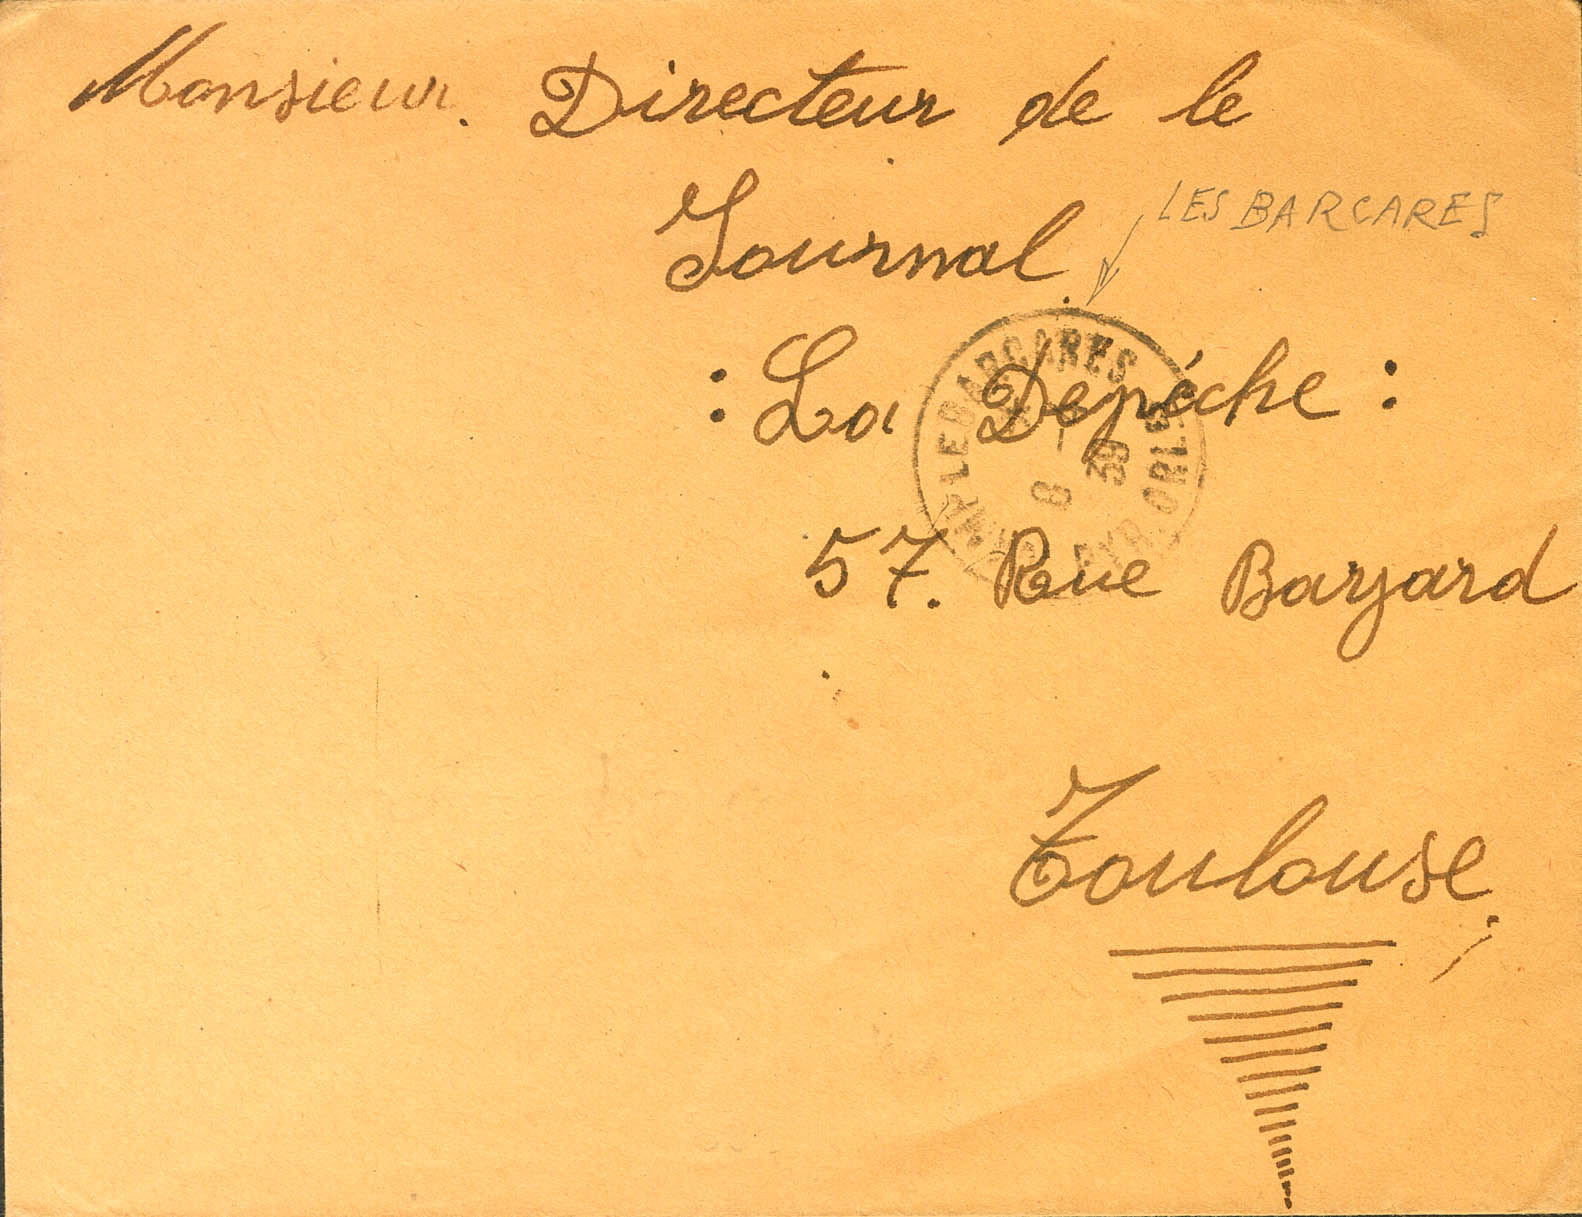 Monsieur. Directeur de le
Journal.
LES BARCARES
: La Depéche :
LE BARCARES
PYR. ORLES
8 39
57. Rue Baryard
Toulouse.